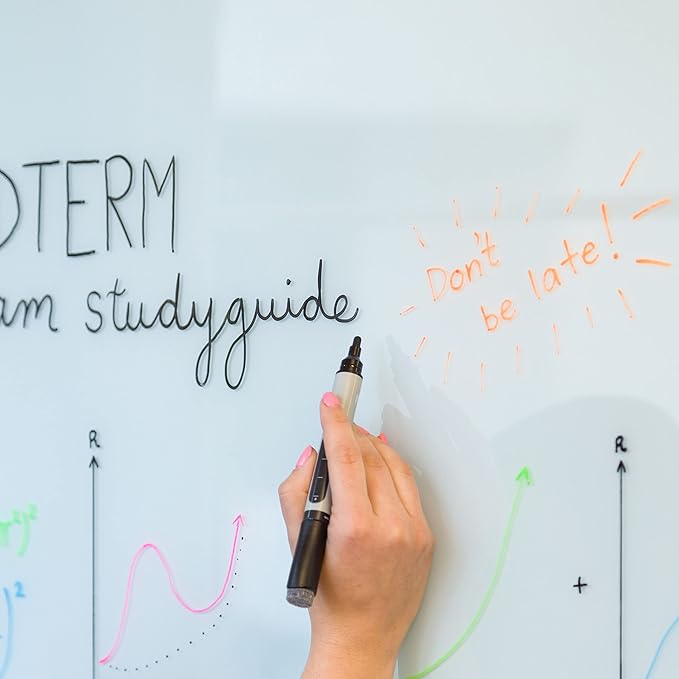 DTERM
am studyguide
Don't
be late!
R
R
+
)²
)²